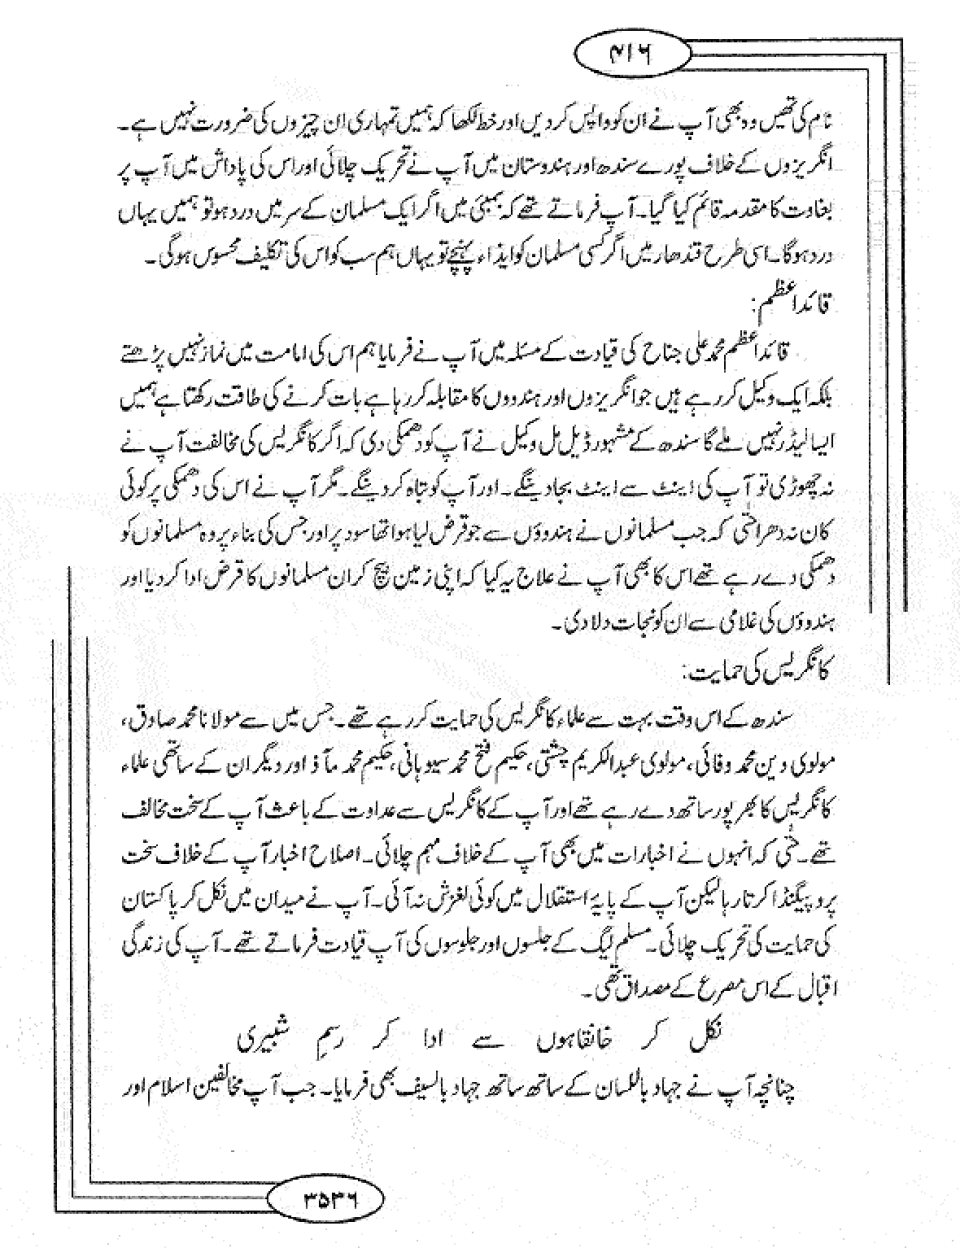 ۴۱۶
نام کی تھیں وہ بھی آپ نے ان کو واپس کر دیں اور خط لکھا کہ ہمیں تمہاری ان چیزوں کی ضرورت نہیں ہے۔
انگریزوں کے خلاف پورے سندھ اور ہندوستان میں آپ نے تحریک چلائی اور اس کی پاداش میں آپ پر
بغاوت کا مقدمہ قائم کیا گیا۔ آپ فرماتے تھے کہ بمبئی میں اگر ایک مسلمان کے سر میں درد ہو تو ہمیں یہاں
درد ہوگا۔ اسی طرح قندھار میں اگر کسی مسلمان کو ایذاء پہنچے تو یہاں ہم سب کو اس کی تکلیف محسوس ہوگی۔
قائد اعظم:
قائد اعظم محمد علی جناح کی قیادت کے مسئلہ میں آپ نے فرمایا ہم اس کی امامت میں نماز نہیں پڑھتے
بلکہ ایک وکیل کر رہے ہیں جو انگریزوں اور ہندووں کا مقابلہ کر رہا ہے بات کرنے کی طاقت رکھتا ہے ہمیں
ایسا لیڈر نہیں ملے گا سندھ کے مشہور ڈیل مل وکیل نے آپ کو دھمکی دی کہ اگر کانگریس کی مخالفت آپ نے
نہ چھوڑی تو آپ کی اینٹ سے اینٹ بجا دینگے۔ اور آپ کو تباہ کر دینگے۔ مگر آپ نے اس کی دھمکی پر کوئی
کان نہ دھرا حتٰی کہ جب مسلمانوں نے ہندوؤں سے جو قرض لیا ہوا تھا سود پر اور جس کی بناء پر وہ مسلمانوں کو
دھمکی دے رہے تھے اس کا بھی آپ نے علاج یہ کیا کہ اپنی زمین بیچ کر ان مسلمانوں کا قرض ادا کر دیا اور
ہندوؤں کی غلامی سے ان کو نجات دلا دی۔
کانگریس کی حمایت:
سندھ کے اس وقت بہت سے علماء کانگریس کی حمایت کر رہے تھے۔ جس میں سے مولانا محمد صادق،
مولوی دین محمد وفائی، مولوی عبدالکریم چشتی، حکیم فتح محمد سیوہانی، حکیم محمد مآذ اور دیگر ان کے ساتھی علماء
کانگریس کا بھرپور ساتھ دے رہے تھے اور آپ کے کانگریس سے عداوت کے باعث آپ کے سخت مخالف
تھے۔ حتٰی کہ انہوں نے اخبارات میں بھی آپ کے خلاف مہم چلائی۔ اصلاح اخبار آپ کے خلاف سخت
پروپیگنڈا کرتا رہا لیکن آپ کے پایۂ استقلال میں کوئی لغزش نہ آئی۔ آپ نے میدان میں نکل کر پاکستان
کی حمایت کی تحریک چلائی۔ مسلم لیگ کے جلسوں اور جلوسوں کی آپ قیادت فرماتے تھے۔ آپ کی زندگی
اقبال کے اس مصرع کے مصداق تھی۔
نکل کر خانقاہوں سے ادا کر رسمِ شبیری
چنانچہ آپ نے جہاد باللسان کے ساتھ ساتھ جہاد بالسیف بھی فرمایا۔ جب آپ مخالفین اسلام اور
۳۵۳۶